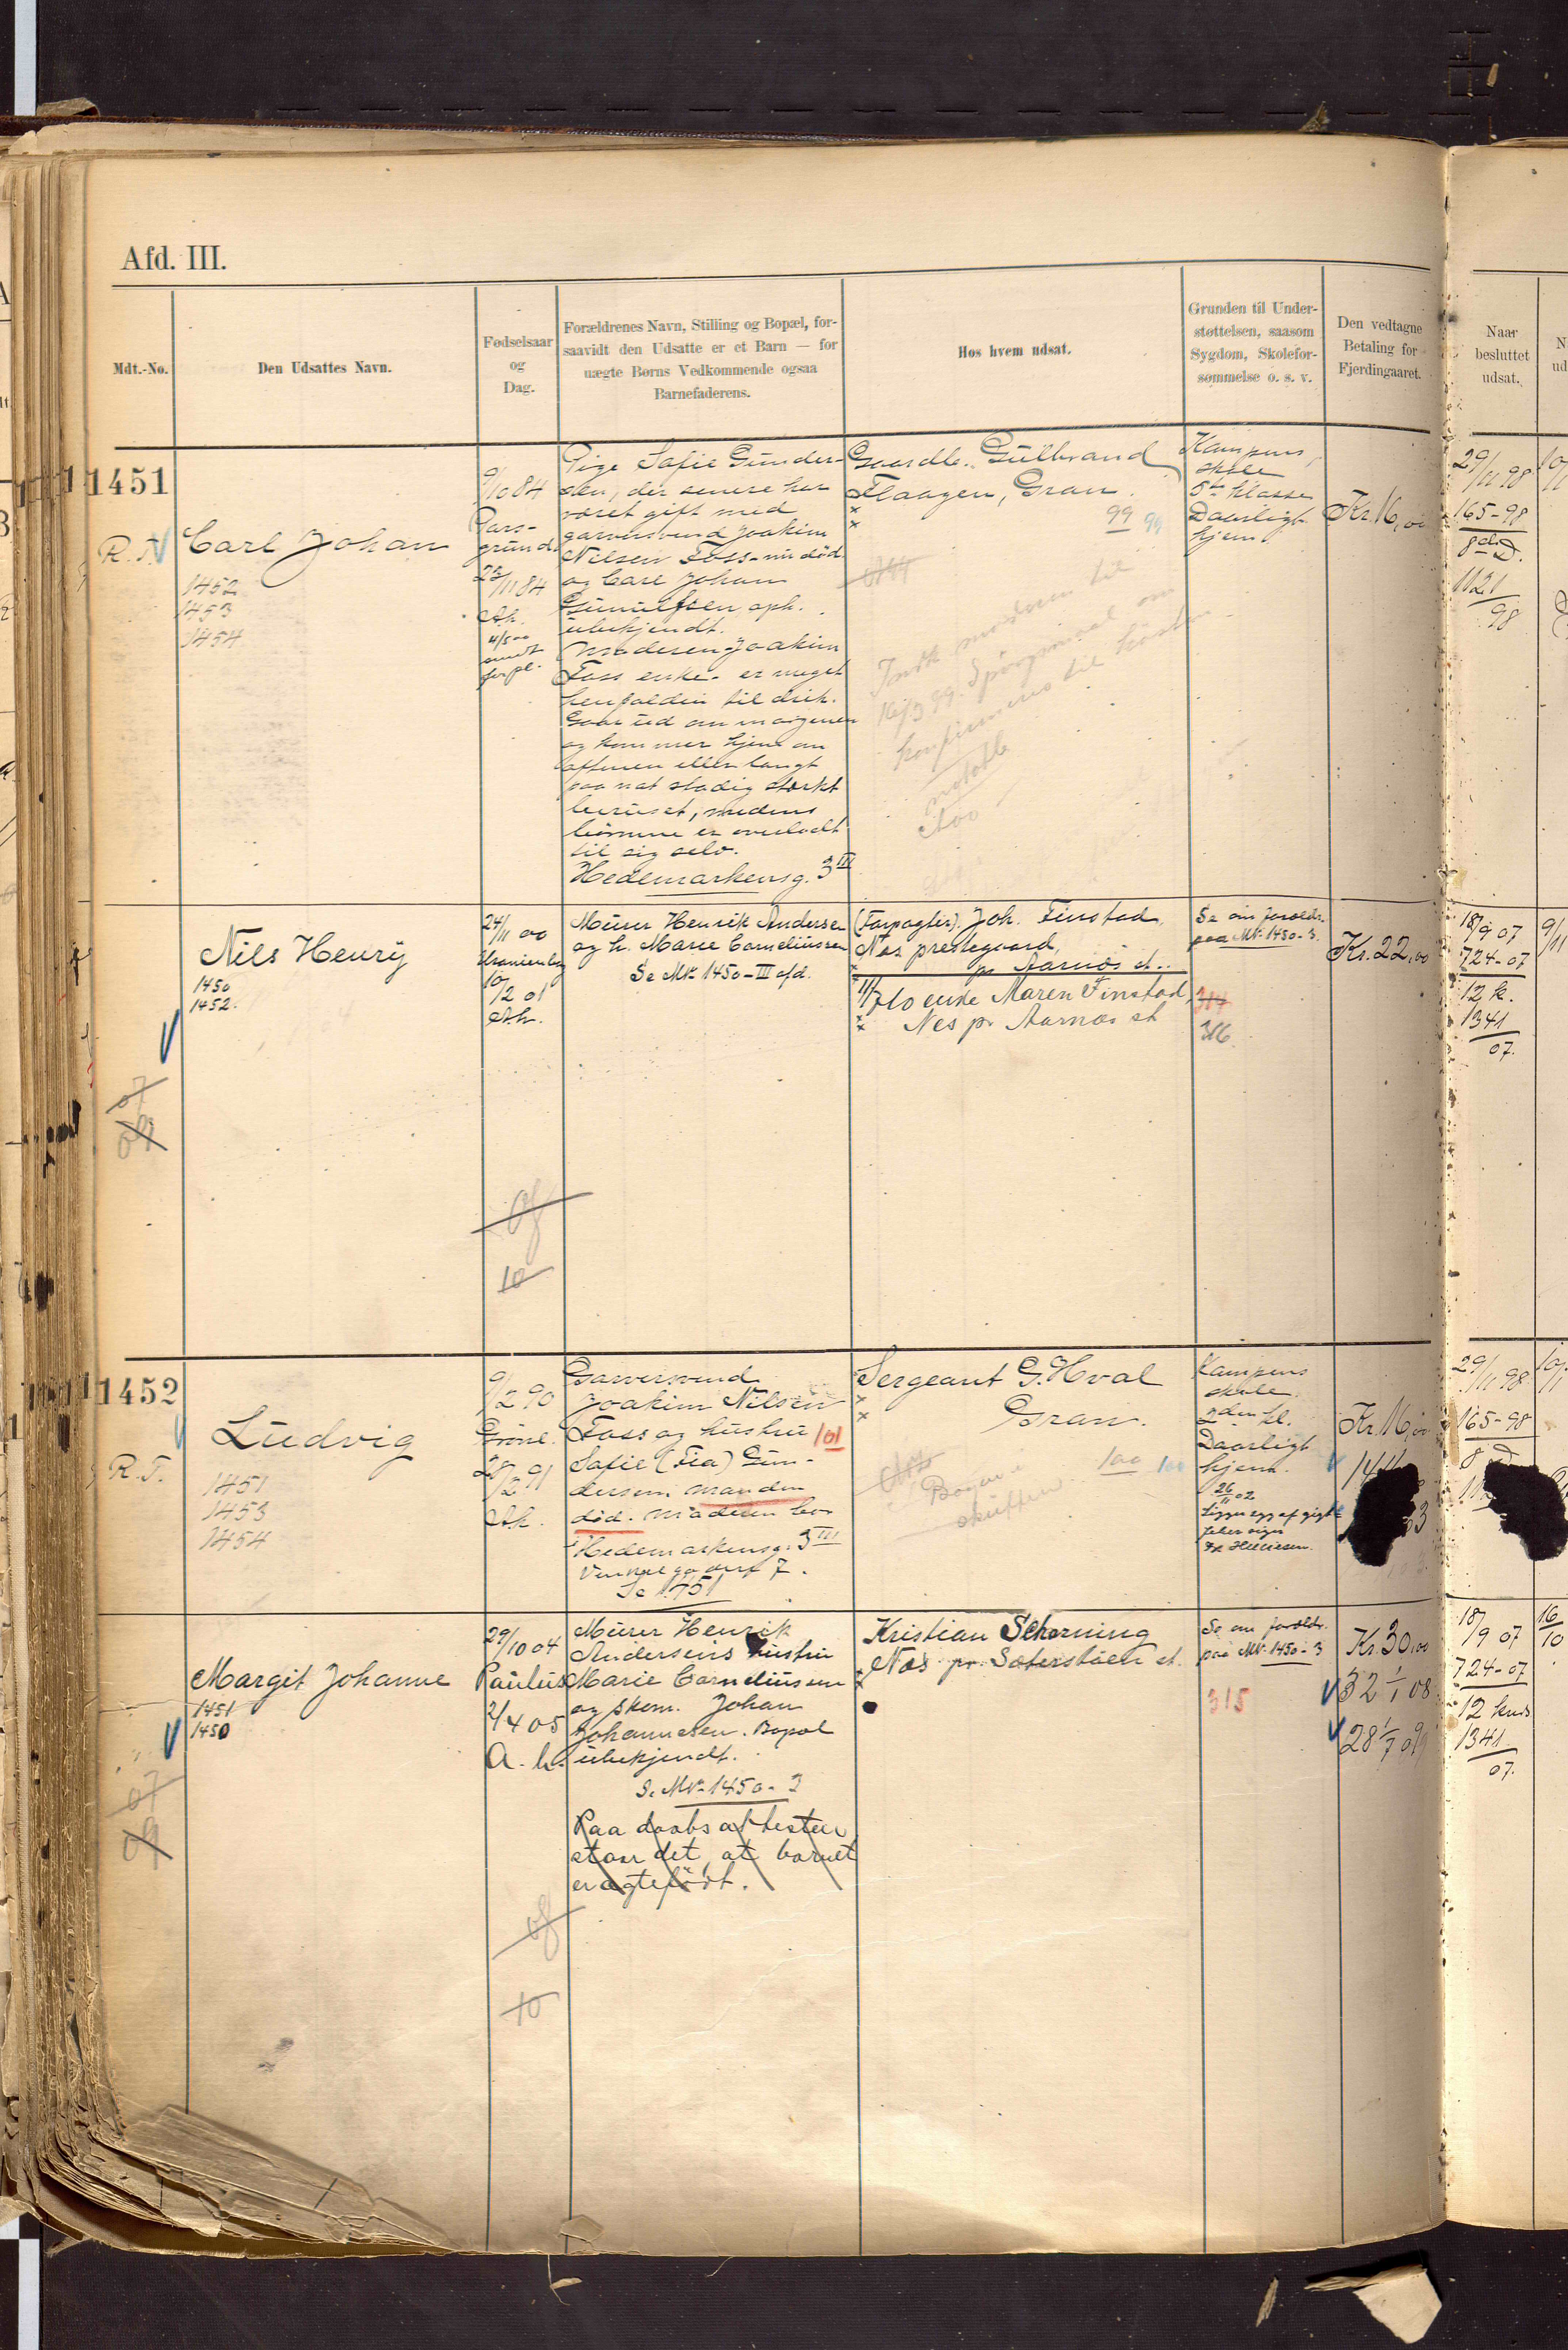 Afd. III.
Mdt.-No.
Den Udsattes Navn.
Fødselsaar
og
Dag.
Forældrenes Navn, Stilling og Bopæl, for-
saavidt den Udsatte er et Barn — for
uægte Børns Vedkommende ogsaa
Barnefaderens.
Hos hvem udsat.
Grunden til Under-
støttelsen, saasom
Sygdom, Skolefor-
sømmelse o. s. v.
Den vedtagne
Betaling for
Fjerdingaaret.
Naar
besluttet
udsat.
1451
R. T.
Carl Johan
1452
1453
1454
9/10 84
23/11 84
4/5 00
Pige Sofie Gunder-
sen, der senere har
været gift med
garversvend Joakim
Nilsen Foss - nu død
og Carl Johan
oph.
ubekjendt.
Moderen Joakim
Foss enke - er meget
henfalden til drik.
Gaar ud om morgenen
og kommer hjem om
aftenen eller langt
paa nat stadig stærkt
beruset, medens
børnene er overladt
til sig selv.
Hedemarkensg. 3 III
Gaardbr. Gulbrand
Flaagen, Gran.
99 99
Kampens
skole
5te klasse
Daarligt
hjem
Kr. 16,00
29/11 98
165-98
8de D.
1121
98
Nils Henry
1450
1452.
07
24/11 00
Uranienborg
10/2 01
A.h.
10
Murer Henrik Andersen
og h. Marie Corneliussen
Se Mk. 1450 - III afd.
(Forpagter). Joh. Finstad
Nes prestegaard,
pr Aarnæs st..
11/7 10 enke Maren Finstad
Nes pr Aarnæs st
Se om forældr.
paa Mk. 1450-3.
314
316
Kr. 22,00
18/9 07
724-07
12 k.
1341
07.
1452
R. T.
Ludvig
1451
1453
1454
9/2 90
Grønl.
28/2 91
A.h.
Garversvend
Joakim Nilsen
Foss og hustru 101
Sofie (Fia) Gun-
dersen manden
død. Moderen bor
Hedemarkensg. 3 III
7.
Se 1751
Sergeant G. Hval
Gran.
100 100
Bogen i
skuffen
Kampens
skole.
2den kl.
Daarligt
hjem.
26/11 02
Ligger syg af gigt-
feber siger
Kr. 16,00
29/11 98
165-98
8
Margit Johanne
1451
1450
07
09
29/10 04
Paulus
2/4 05
A. h.
10
Murer Henrik
Andersens hustru
Marie Corneliussen
og skom. Johan
Johannesen. Bopæl
ubekjendt.
S. Mk. 1450-3
Paa daabsattesten
staar det, at barnet
er ægtefødt.
Kristian Schorning
Næs pr. Sæterstøen st.
Se om forældr.
paa Mk. 1450-3
315
Kr. 30,00
32 1/1 08
28 1/7 09
18/9 07
724-07
12 knds
1341
07.
16/10